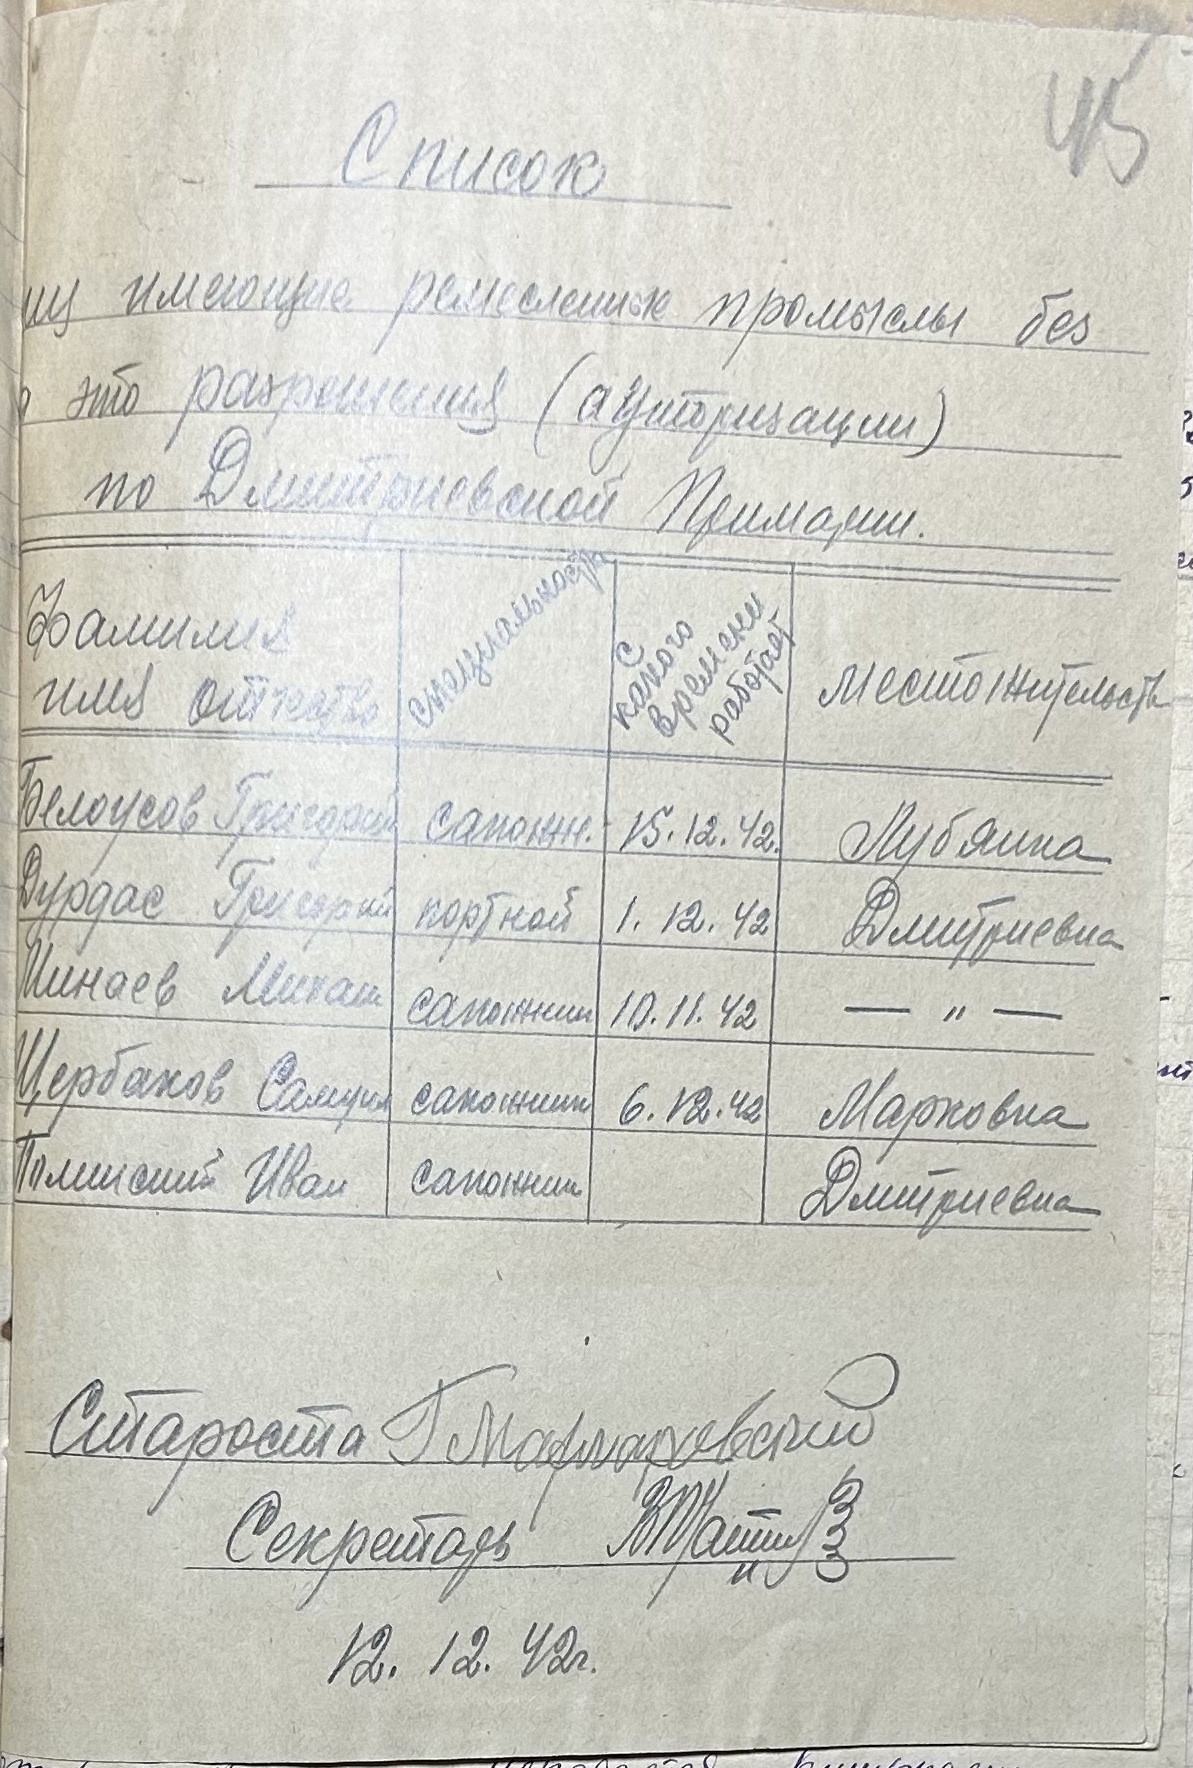 45
Список
лиц имеющие ремесленые промыслы без
это разрешения (ауторизации)
по Дмитриевской Примарии.
Фамилия имя отчество специальность с какого времени работает местожительств
Белоусов Григорий сапожн. 15.12.42. Лубянка
Дурдас Григорий портной 1.12.42 Дмитриевка
Минаев Михаил сапожник 10.11.42 — „ —
Щербаков Самуил сапожник 6.12.42 Марковка
Иван сапожник Дмитриевка
Староста
Секретарь
12.12.42г.